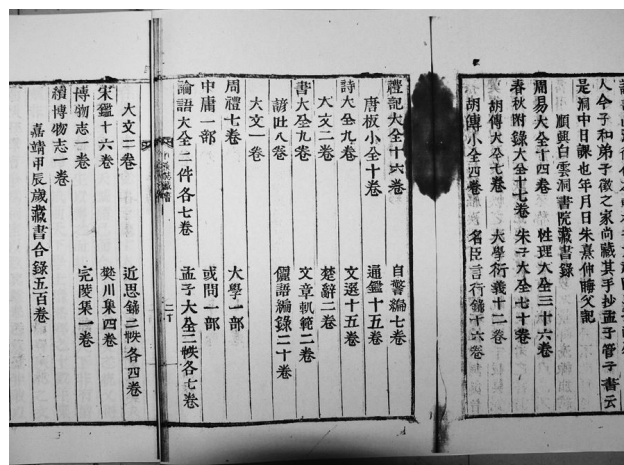 人今子和弟子徵之家尚藏其手抄孟子管子書云
是洞中日課也年月日朱熹仲晦父記
順興白雲洞書院藏書錄
周易大全十四卷 性理大全三十六卷
春秋附錄大全十七卷 朱子大全七十卷
胡傳大全七卷 大學衍義十二卷
胡傳小全四卷 名臣言行錄十六卷
禮記大全十六卷 自警編七卷
唐板小全十卷 通鑑十五卷
詩大全九卷 文選十五卷
大文二卷 楚辭二卷
書大全九卷 文章軌範二卷
諺吐八卷 儷語編錄二十卷
大文一卷
周禮七卷 大學一部
中庸一部 或問一部
論語大全二件各七卷 孟子大全二帙各七卷
大文二卷 近思錄二帙各四卷
宋鑑十六卷 樊川集四卷
博物志一卷 宛陵集一卷
續博物志一卷
嘉靖甲辰歲藏書合錄五百卷